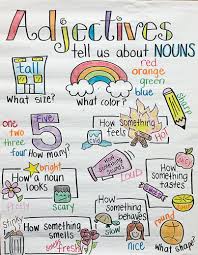 Adjectives
tell us about NOUNS
tall
red
orange
green
blue
What size?
What color?
sharp
one
two
three
four
5
How many?
How something
feels
HOT
cold
bright
How a noun
looks
How something
sounds
loud
How something
tastes
forest
scary
sour
stinky
How something
smells
fresh
How something
behaves
nice
round
What shape?